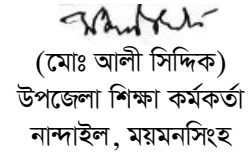 (মোঃ আলী সিদ্দিক)
উপজেলা শিক্ষা কর্মকর্তা
নান্দাইল, ময়মনসিংহ